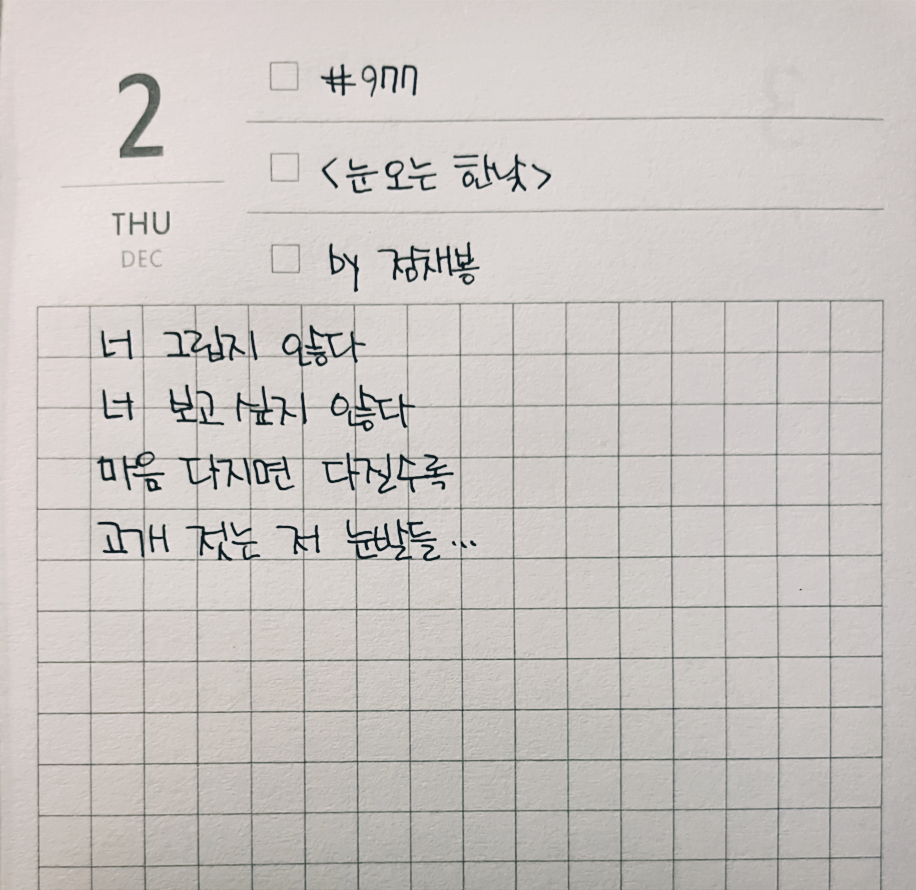 2
THU
DEC
#977
<눈 오는 한낮>
by 정채봉
너 그립지 않다
너 보고 싶지 않다
마음 다지면 다질수록
고개 젓는 저 눈발들...